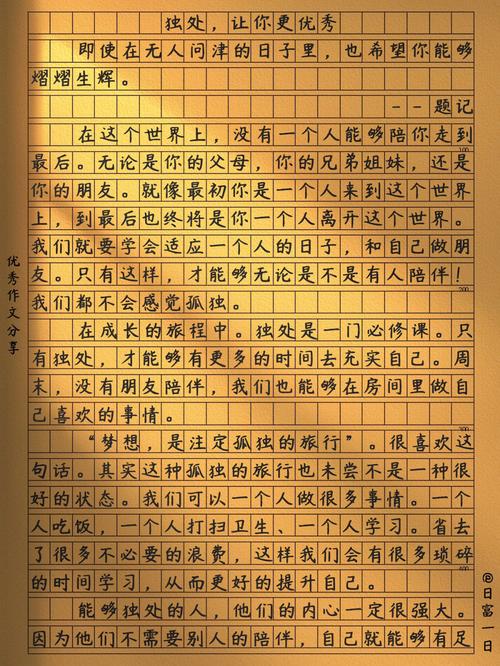 独处，让你更优秀
即使在无人问津的日子里，也希望你能够
熠熠生辉。
－－题记
在这个世界上，没有一个人能够陪你走到
最后。无论是你的父母，你的兄弟姐妹，还是
你的朋友。就像最初你是一个人来到这个世界
上，到最后也终将是你一个人离开这个世界。
我们就要学会适应一个人的日子，和自己做朋
友。只有这样，才能够无论是不是有人陪伴！
我们都不会感觉孤独。
在成长的旅程中。独处是一门必修课。只
有独处，才能够有更多的时间去充实自己。周
末，没有朋友陪伴，我们也能够在房间里做自
己喜欢的事情。
“梦想，是注定孤独的旅行”。很喜欢这
句话。其实这种孤独的旅行也未尝不是一种很
好的状态。我们可以一个人做很多事情。一个
人吃饭，一个人打扫卫生、一个人学习。省去
了很多不必要的浪费，这样我们会有很多琐碎
的时间学习，从而更好的提升自己。
能够独处的人，他们的内心一定很强大。
因为他们不需要别人的陪伴，自己就能够有足
100
200
300
400
优秀作文分享
@日富一日